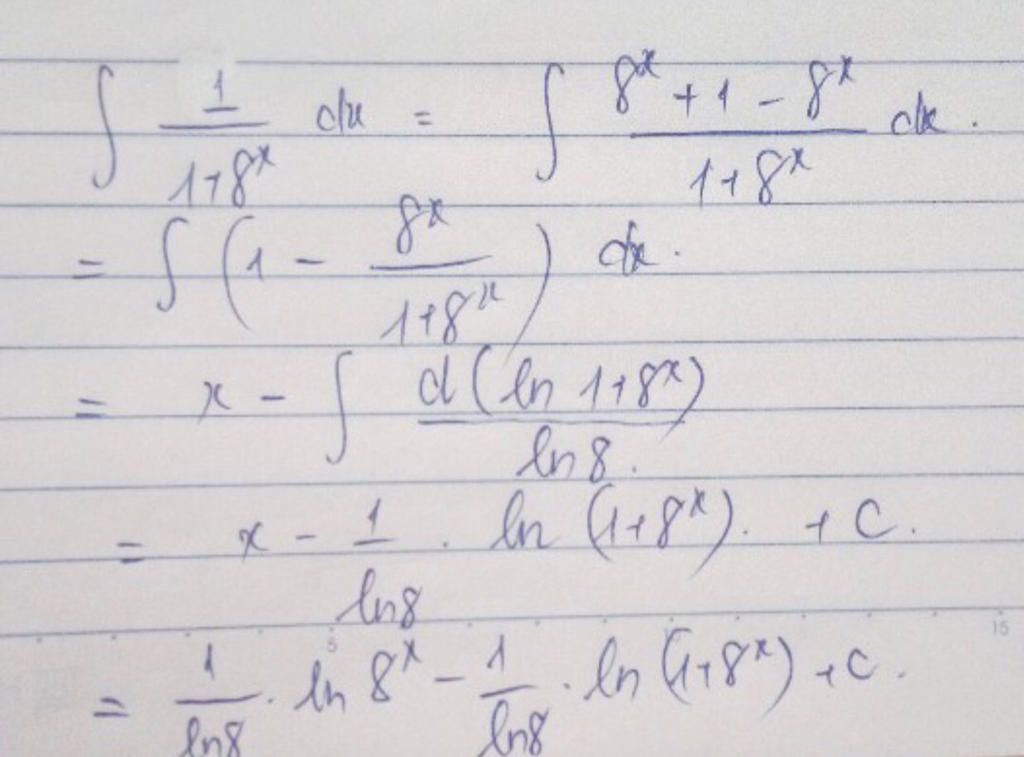 ∫ 1/(1+8^x) dx = ∫ (8^x + 1 - 8^x)/(1+8^x) dx.
= ∫ (1 - 8^x/(1+8^x)) dx.
= x - ∫ d(ln 1+8^x)/ln8.
= x - 1/ln8 . ln (1+8^x). + C.
= 1/ln8 . ln 8^x - 1/ln8 . ln (1+8^x) + C.
5 15